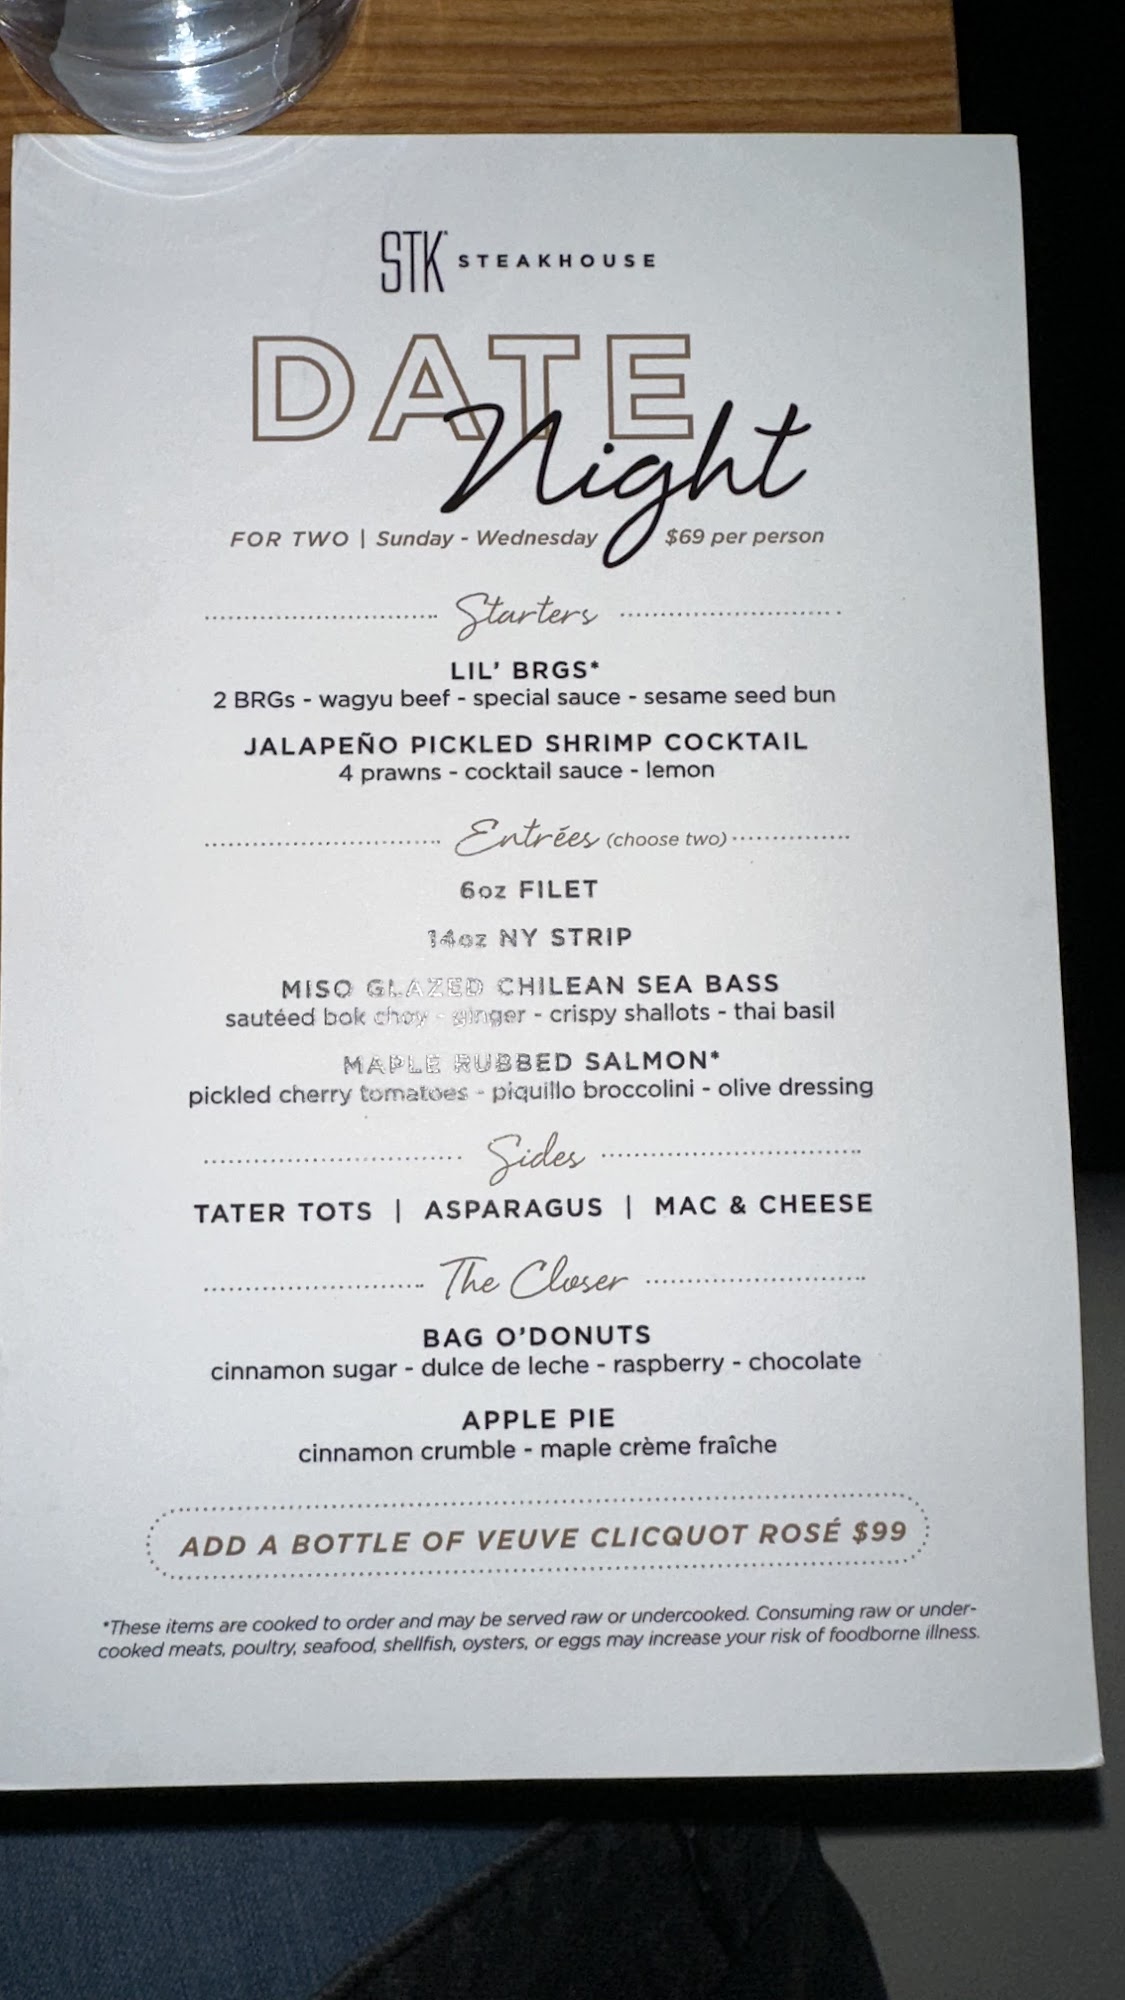 STK STEAKHOUSE
DATE
Night
FOR TWO | Sunday - Wednesday $69 per person
Starters
LIL' BRGS*
2 BRGs - wagyu beef - special sauce - sesame seed bun
JALAPEÑO PICKLED SHRIMP COCKTAIL
4 prawns - cocktail sauce - lemon
Entrées (choose two)
6oz FILET
14oz NY STRIP
MISO GLAZED CHILEAN SEA BASS
sautéed bok choy - ginger - crispy shallots - thai basil
MAPLE RUBBED SALMON*
pickled cherry tomatoes - piquillo broccolini - olive dressing
Sides
TATER TOTS | ASPARAGUS | MAC & CHEESE
The Closer
BAG O'DONUTS
cinnamon sugar - dulce de leche - raspberry - chocolate
APPLE PIE
cinnamon crumble - maple crème fraîche
ADD A BOTTLE OF VEUVE CLICQUOT ROSÉ $99
*These items are cooked to order and may be served raw or undercooked. Consuming raw or under-
cooked meats, poultry, seafood, shellfish, oysters, or eggs may increase your risk of foodborne illness.